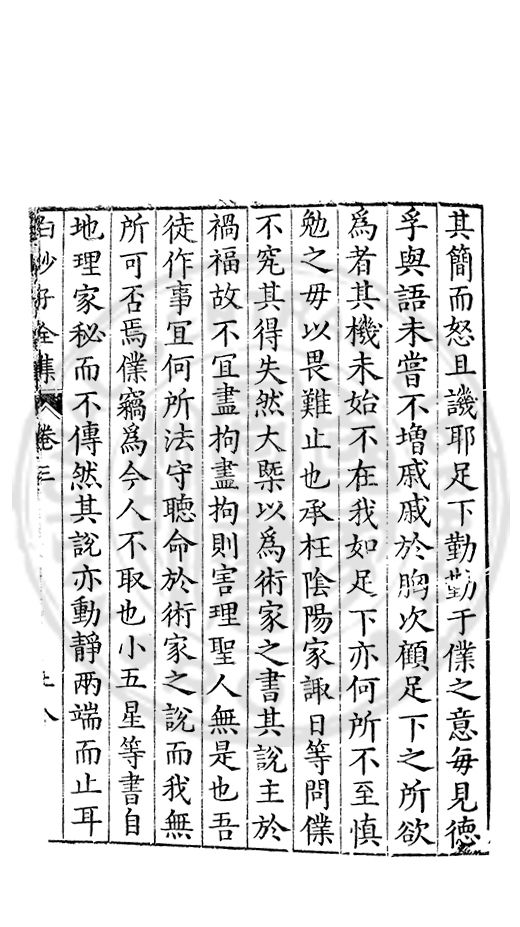 其簡而怒且譏耶足下勤勤于僕之意每見德
孚與語未嘗不增戚戚於胸次顧足下之所欲
爲者其機未始不在我如足下亦何所不至慎
勉之毋以畏難止也承枉陰陽家諏日等問僕
不究其得失然大槩以爲術家之書其說主於
禍福故不宜盡拘盡拘則害理聖人無是也吾
徒作事冝何所法守聽命於術家之說而我無
所可否焉僕竊爲今人不取也小五星等書自
地理家秘而不傳然其說亦動靜兩端而止耳
白沙子全集 卷三